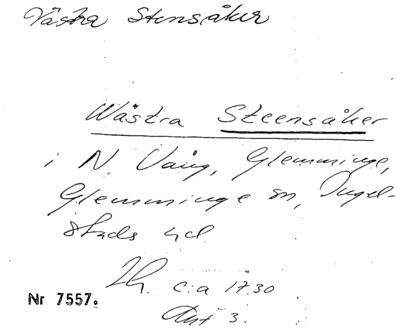 Västra Stensåker
Wästra Steensåker
i N. Vång, Glemminge,
Glemminge sn, Ingel-
stads hd.
Th. c:a 1730
Akt 3.
Nr 7557.